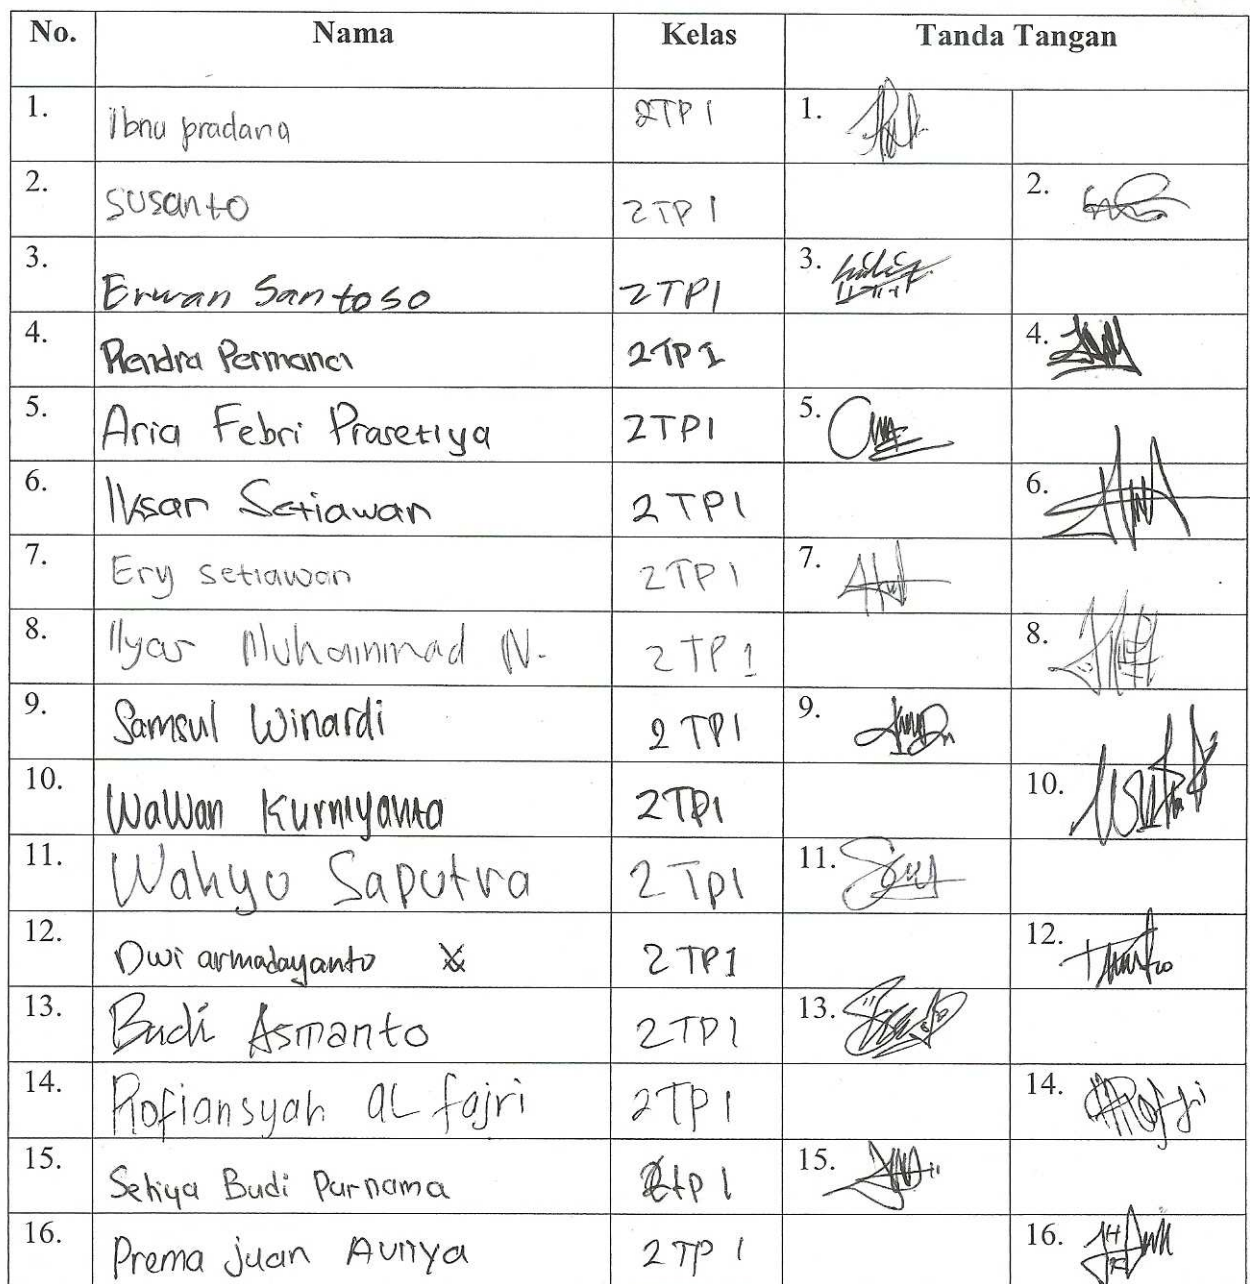 No. Nama Kelas Tanda Tangan
1. Ibnu pradana 2TP1 1.
2. Susanto 2TP1 2.
3. Erwan Santoso 2TP1 3.
4. Rendra Permana 2TP1 4.
5. Aria Febri Prasetiya 2TP1 5.
6. Iksan Setiawan 2TP1 6.
7. Ery setiawan 2TP1 7.
8. Ilyas Muhammad N. 2TP1 8.
9. Samsul Winardi 2TP1 9.
10. Wawan Kurniyanto 2TP1 10.
11. Wahyu Saputra 2Tp1 11.
12. Dwi armadayanto 2TP1 12.
13. Budi Asmanto 2TP1 13.
14. Rofiansyah aL fajri 2TP1 14.
15. Setiya Budi Purnama 2tp1 15.
16. Prema juan 2TP1 16.